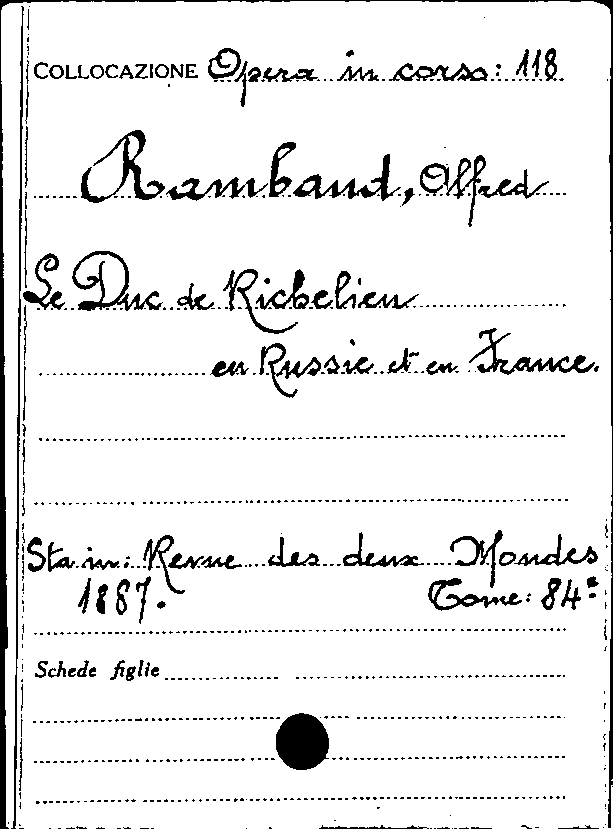 COLLOCAZIONE Opera in corso: 118
Rambaud, Alfred
Le Duc de Richelieu
en Russie et en France.
Sta in: Revue des deux Mondes
1887. Tome: 84º
Schede figlie